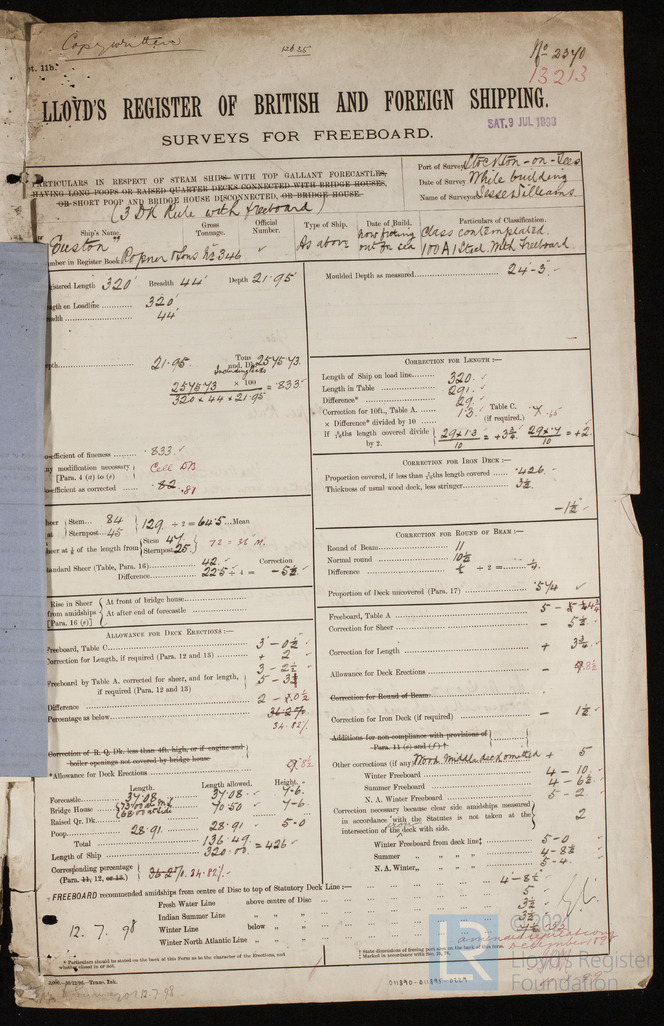 Copy written
12635
No 2370
13213
pt. 11b.
LLOYD'S REGISTER OF BRITISH AND FOREIGN SHIPPING.
SAT. 9 JUL 1898
SURVEYS FOR FREEBOARD.
PARTICULARS IN RESPECT OF STEAM SHIPS WITH TOP GALLANT FORECASTLES,
HAVING LONG POOPS OR RAISED QUARTER DECKS CONNECTED WITH BRIDGE HOUSES,
OR SHORT POOP AND BRIDGE HOUSE DISCONNECTED, OR BRIDGE HOUSE.
(3 Dk Rule with freeboard)
Port of Survey Stockton-on-Tees
Date of Survey While building
Name of Surveyor Jesse Williams
Ship's Name. Gross Tonnage. Official Number. Type of Ship. Date of Build. Particulars of Classification.
"Euston" As above now fitting out for sea Class contemplated.
100 A1 Steel. With Freeboard.
Number in Register Book Ropner & Sons No 346
Registered Length 320' Breadth 44' Depth 21.95
Moulded Depth as measured 24-3
Length on Loadline 320'
Breadth 44'
Depth 21.95 Tons und. Dk. 2575.73
Including
2575.73 × 100 = .833
320 × 44 × 21.95
Coefficient of fineness .833
Any modification necessary [Para. 4 (a) to (e)] Cell DB
Coefficient as corrected .82 .81
CORRECTION FOR LENGTH:—
Length of Ship on load line 320
Length in Table 291
Difference* 29
Correction for 10ft., Table A. 1.3 Table C. (if required.) .7
× Difference* divided by 10
If 6/10ths length covered divide by 2. 29×1.3 / 10 = +3¾ 29×.7 / 10 = +2
CORRECTION FOR IRON DECK:—
Proportion covered, if less than 7/10ths length covered .426
Thickness of usual wood deck, less stringer 3½
-1½
CORRECTION FOR ROUND OF BEAM:—
Round of Beam 11
Normal round 10½
Difference ½ ÷ 2 = ¼
Proportion of Deck uncovered (Para. 17) .574
Sheer at Stem 84 Sternpost 45 129 ÷ 2 = 64.5 Mean
Sheer at ⅛ of the length from Stem 47 Sternpost 25 72 = 36 M.
Standard Sheer (Table, Para. 16) 42 Correction
Difference 22.5 ÷ 4 = -5½
Rise in Sheer from amidships [Para. 16 (e)] At front of bridge house
At after end of forecastle
ALLOWANCE FOR DECK ERECTIONS:—
Freeboard, Table C. 3 - 0½
Correction for Length, if required (Para. 12 and 13) + 2
3 - 2½
Freeboard by Table A. corrected for sheer, and for length, if required (Para. 12 and 13) 5 - 3
Difference 2 - 0½
Percentage as below 36.2%
34.82%
Correction of R. Q. Dk. less than 4ft. high, or if engine and boiler openings not covered by bridge house
*Allowance for Deck Erections 8½
Length. Length allowed. Height.
Forecastle 37.08 37.08 7-6
Bridge House 73.00 at Mid 68.00 at side 70.50 7-6
Raised Qr. Dk.
Poop 28.91 28.91 5-0
Total 136.49
Length of Ship 320.00 = .426
Corresponding percentage (Para. 11, 12, or 13.) 36.2% 34.82%
Freeboard, Table A 5 -
Correction for Sheer - 5½
Correction for Length + 3¾
Allowance for Deck Erections - 8½
Correction for Round of Beam
Correction for Iron Deck (if required) - 1½
Additions for non-compliance with provisions of Para. 11 (e) and (f) †
Other corrections (if any) Wood Middle deck omitted + 5
Winter Freeboard 4 - 10
Summer Freeboard 4 - 6½
N. A. Winter Freeboard 5 - 2
Correction necessary because clear side amidships measured in accordance with the Statutes is not taken at the intersection of the iron deck with side. 2
Winter Freeboard from deck line‡ 5-0
Summer " " " " 4-8½
N. A. Winter " " " " 5-4
FREEBOARD recommended amidships from centre of Disc to top of Statutory Deck Line:— 4-8½
Fresh Water Line above centre of Disc 5
Indian Summer Line " " 3½
Winter Line below " " 3½
Winter North Atlantic Line " " 7½
12. 7. 98
* Particulars should be stated on the back of this Form as to the character of the Erections, and whether closed in or not.
‡ Marked in accordance with Sec.
011890-011895-0229
© 2021
LR
Lloyd's Register
Foundation